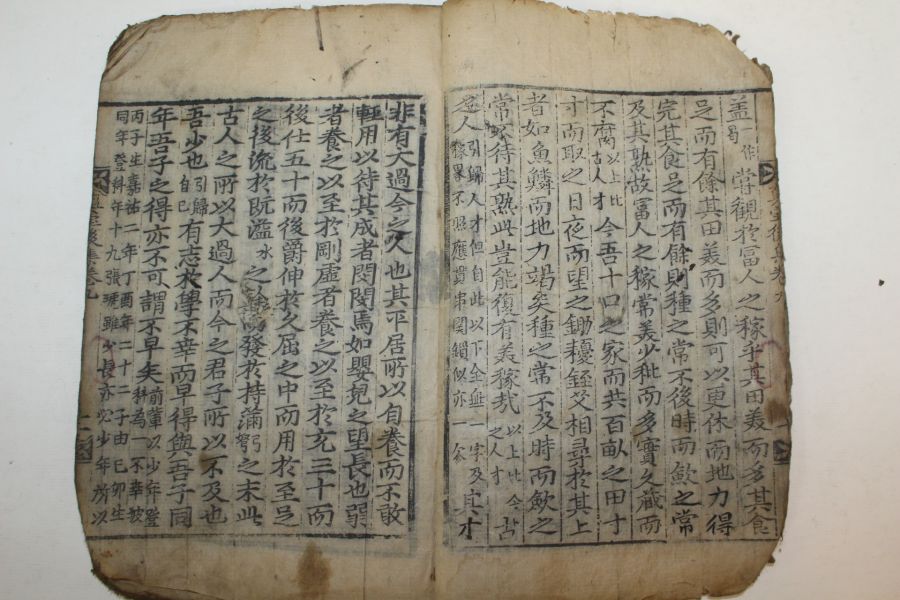 盖一作曷嘗觀於冨人之稼乎其田美而多其食
足而有餘其田美而多則可以更休而地力得
完其食足而有餘則種之常不後時而歛之常
及其熟故冨人之稼常美少秕而多實久藏而
不腐以上比古人才今吾十口之家而共百畝之田寸
寸而取之日夜而望之鋤耰銍艾相尋於其上
者如魚鱗而地力竭矣種之常不及時而歛之
常不待其熟此豈能復有美稼哉以上比今之人才古
之人引歸人才但自此以下全無一字及稼畧不照應貫串関鎖似亦一体其才
非有大過今之人也其平居所以自養而不敢
輕用以待其成者閔閔焉如嬰兒之望長也弱
者養之以至於剛虛者養之以至於充三十而
後仕五十而後爵伸於久屈之中而用於至足
之後流於旣溢水之餘而發於持滿弓之末此
古人之所以大過人而今之君子所以不及也
吾少也引歸自己有志於學不幸而早得與吾子同
年吾子之得亦不可謂不早矣前輩以少年登科為一不幸坡
丙子生嘉祐二年丁酉年二十二子由己卯生
同年登科年十九張琥雖少長亦必少年所以